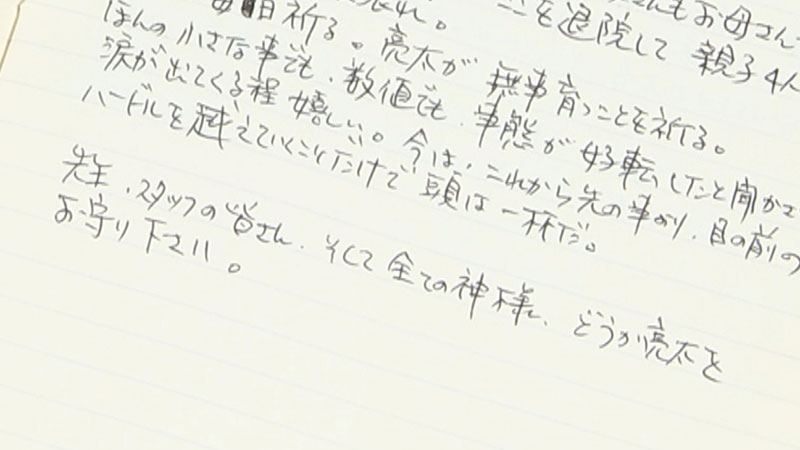 さんもお母さん
ことを退院して 親子4人
毎日祈る。亮太が 無事育つことを祈る。
ほんの小さな事でも、数値でも、事態が好転したと聞かさ
涙が出てくる程 嬉しい。今は、これから先の事より、目の前の
ハードルを越えていくことだけで頭は一杯だ。
先生、スタッフの皆さん、そして全ての神様、どうか亮太を
お守り下さい。